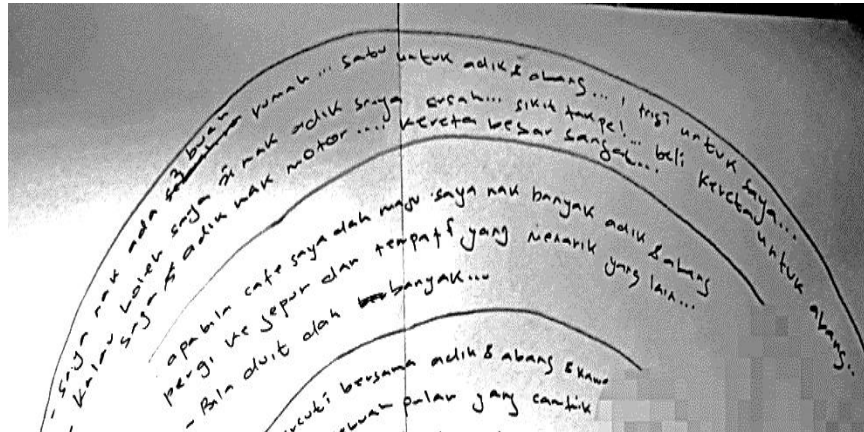 - saya nak ada 3 buah rumah... satu untuk adik & abang... 1 lagi untuk saya...
- Kalau boleh saya nak adik saya susah... sikit takpe!... beli kereta untuk abang..
saya & adik nak motor.... kereta besar sangat...
apabila cafe saya dah maju saya nak banyak adik & abang
pergi ke Jepun dan tempat yang menarik yang lain...
- Bila duit dah banyak...
bersama adik & abang &
pulau yang cantik